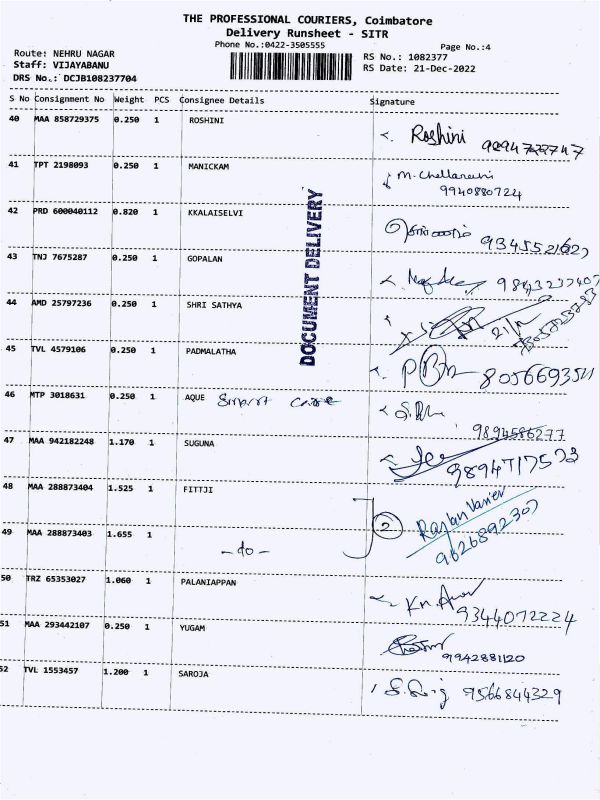 THE PROFESSIONAL COURIERS, Coimbatore
Delivery Runsheet - SITR
Phone No.:0422-3505555
Page No.:4
Route: NEHRU NAGAR
Staff: VIJAYABANU
RS No.: 1082377
RS Date: 21-Dec-2022
DRS No.: DCJB108237704
S No Consignment No Weight PCS Consignee Details Signature
40 MAA 858729375 0.250 1 ROSHINI Roshini
41 TPT 2198093 0.250 1 MANICKAM M. Chellamani
9940880724
42 PRD 600040112 0.820 1 KKALAISELVI
43 TNJ 7675287 0.250 1 GOPALAN 9843237407
44 AMD 25797236 0.250 1 SHRI SATHYA 21/12
45 TVL 4579106 0.250 1 PADMALATHA
46 MTP 3018631 0.250 1 AQUE Smart care
9894586277
47 MAA 942182248 1.170 1 SUGUNA
9894717573
48 MAA 288873404 1.525 1 FITTJI 2
9626892307
49 MAA 288873403 1.655 1 -do-
50 TRZ 65353027 1.060 1 PALANIAPPAN
9344072224
51 MAA 293442107 0.250 1 YUGAM
9942881120
52 TVL 1553457 1.200 1 SAROJA 9566844329
DOCUMENT DELIVERY